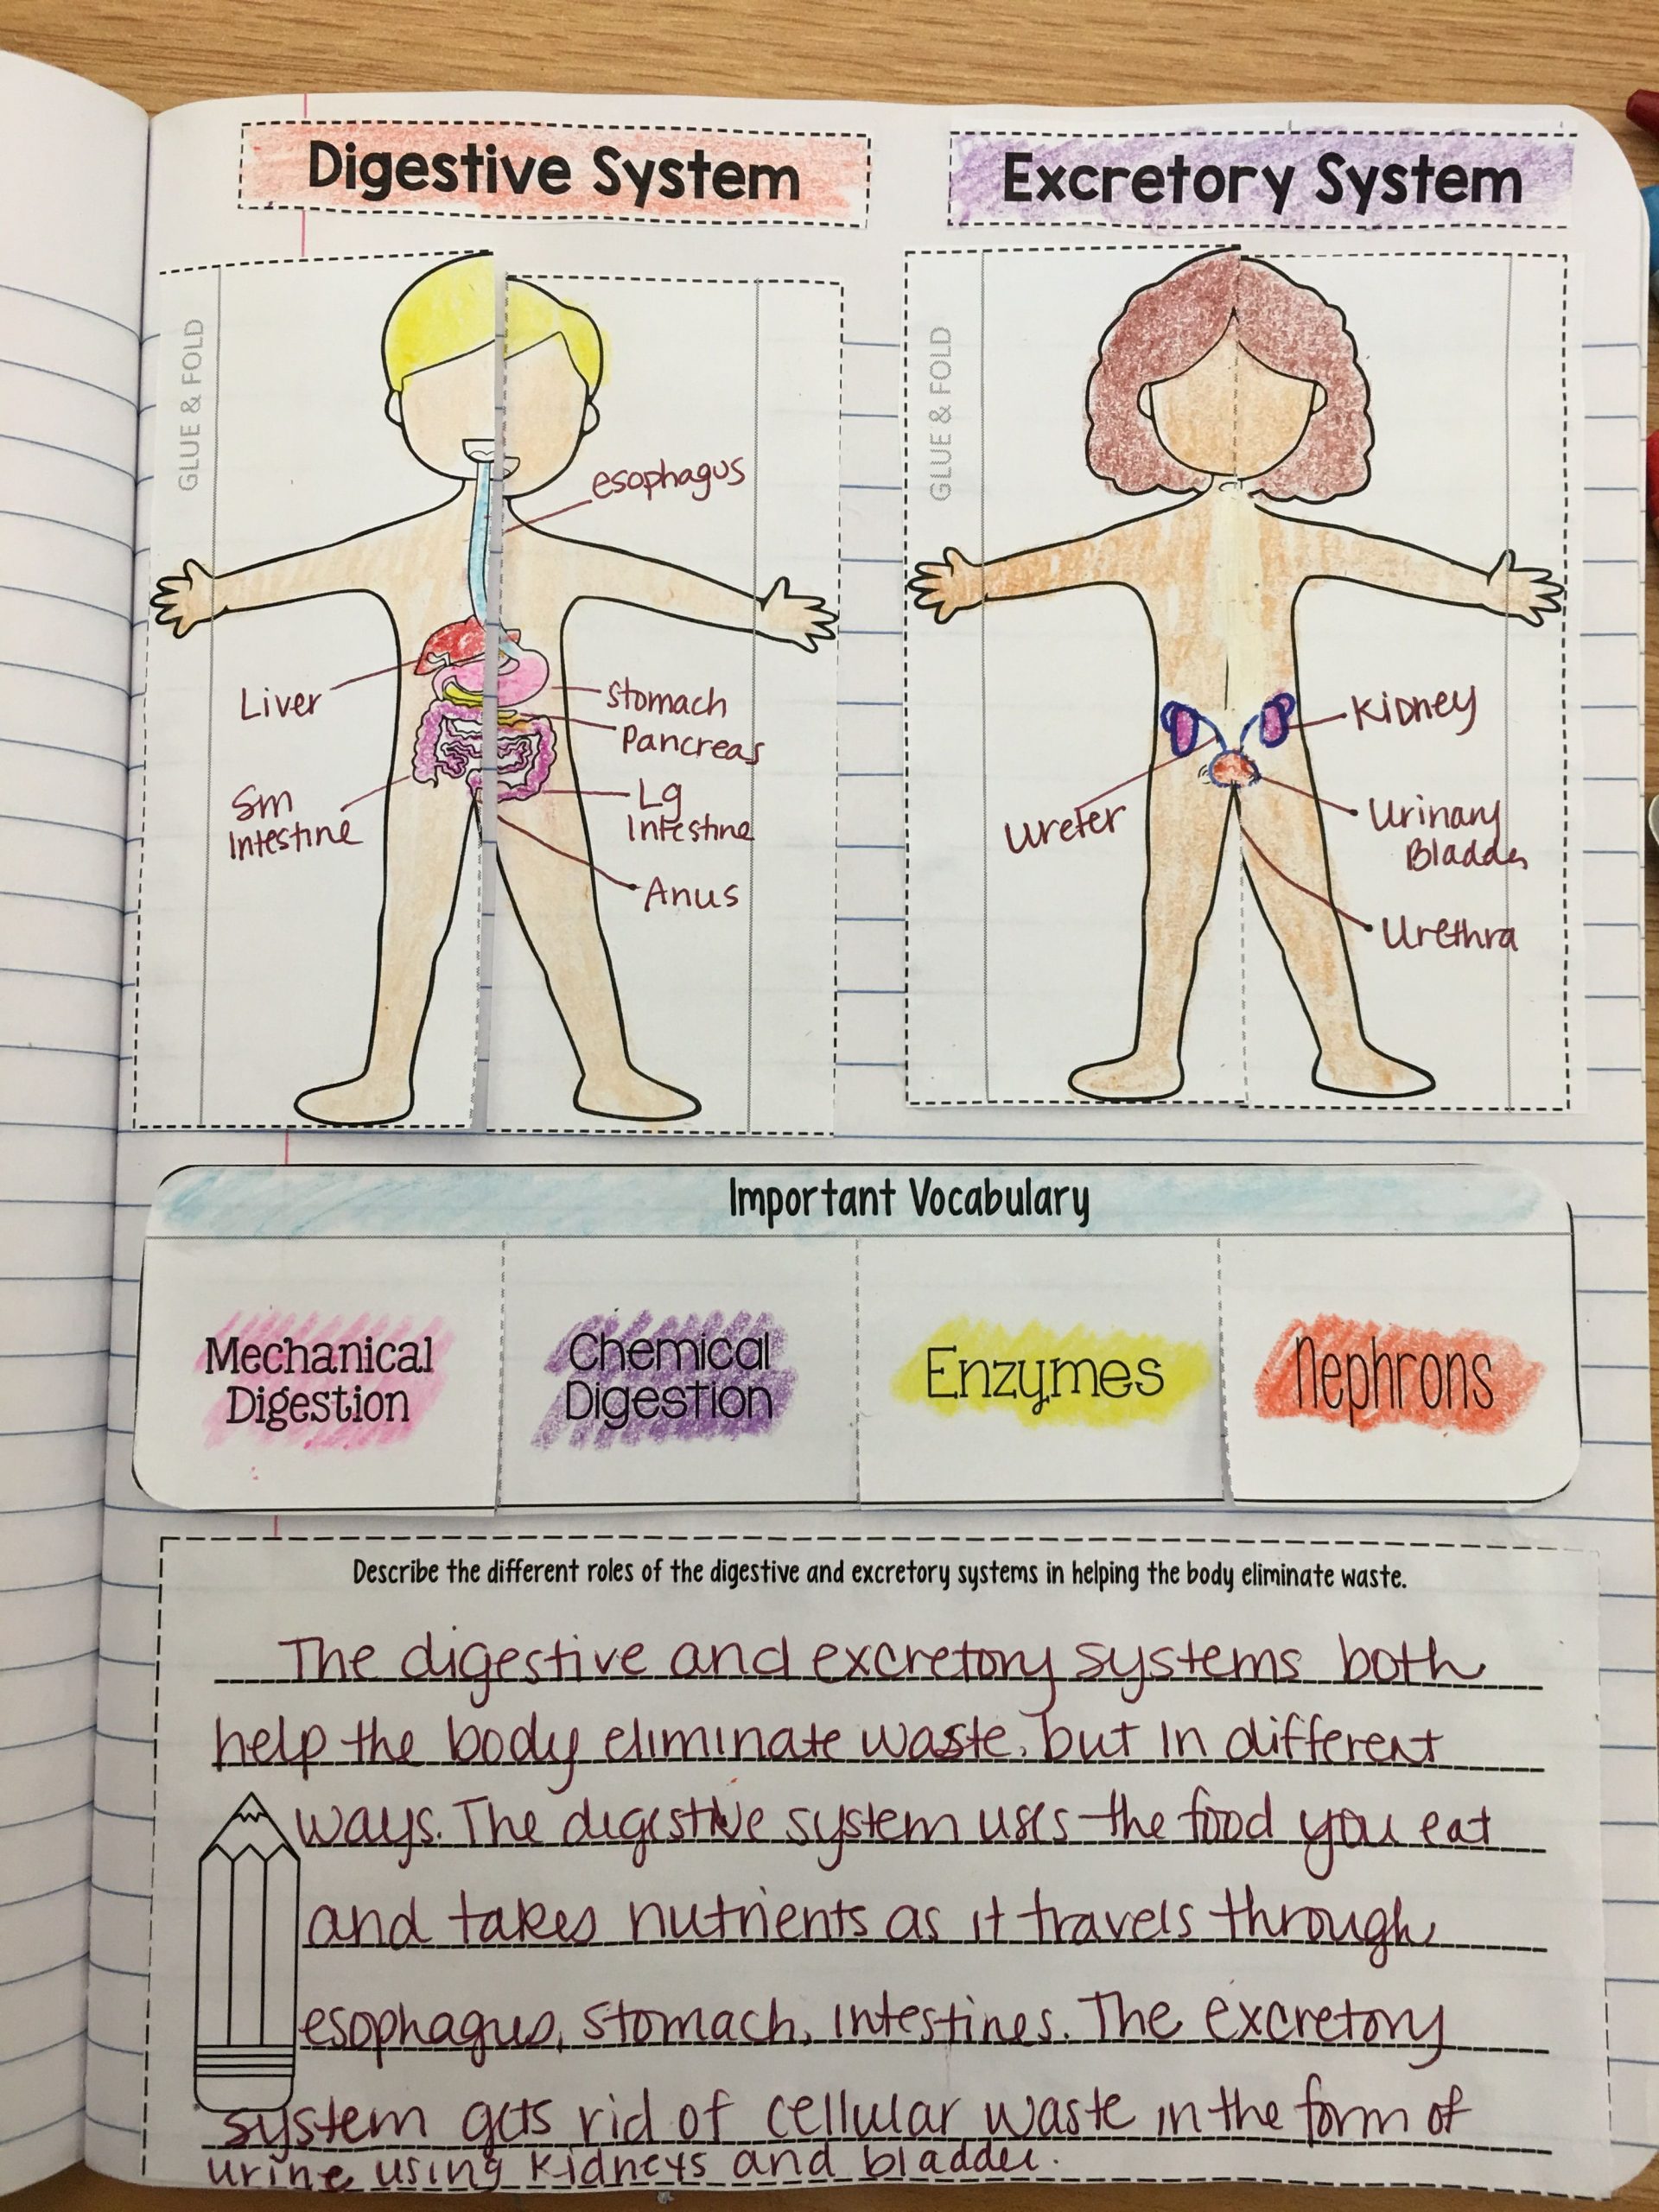 Digestive System
Excretory System
GLUE & FOLD
esophagus
Liver
Stomach
Pancreas
Sm
Intestine
Lg
Intestine
Anus
GLUE & FOLD
Kidney
Ureter
Urinary
Bladder
Urethra
Important Vocabulary
Mechanical
Digestion
Chemical
Digestion
Enzymes
Nephrons
Describe the different roles of the digestive and excretory systems in helping the body eliminate waste.
The digestive and excretory systems both
help the body eliminate waste, but in different
ways. The digestive system uses the food you eat
and takes nutrients as it travels through
esophagus, stomach, intestines. The excretory
system gets rid of cellular waste in the form of
urine using kidneys and bladder.